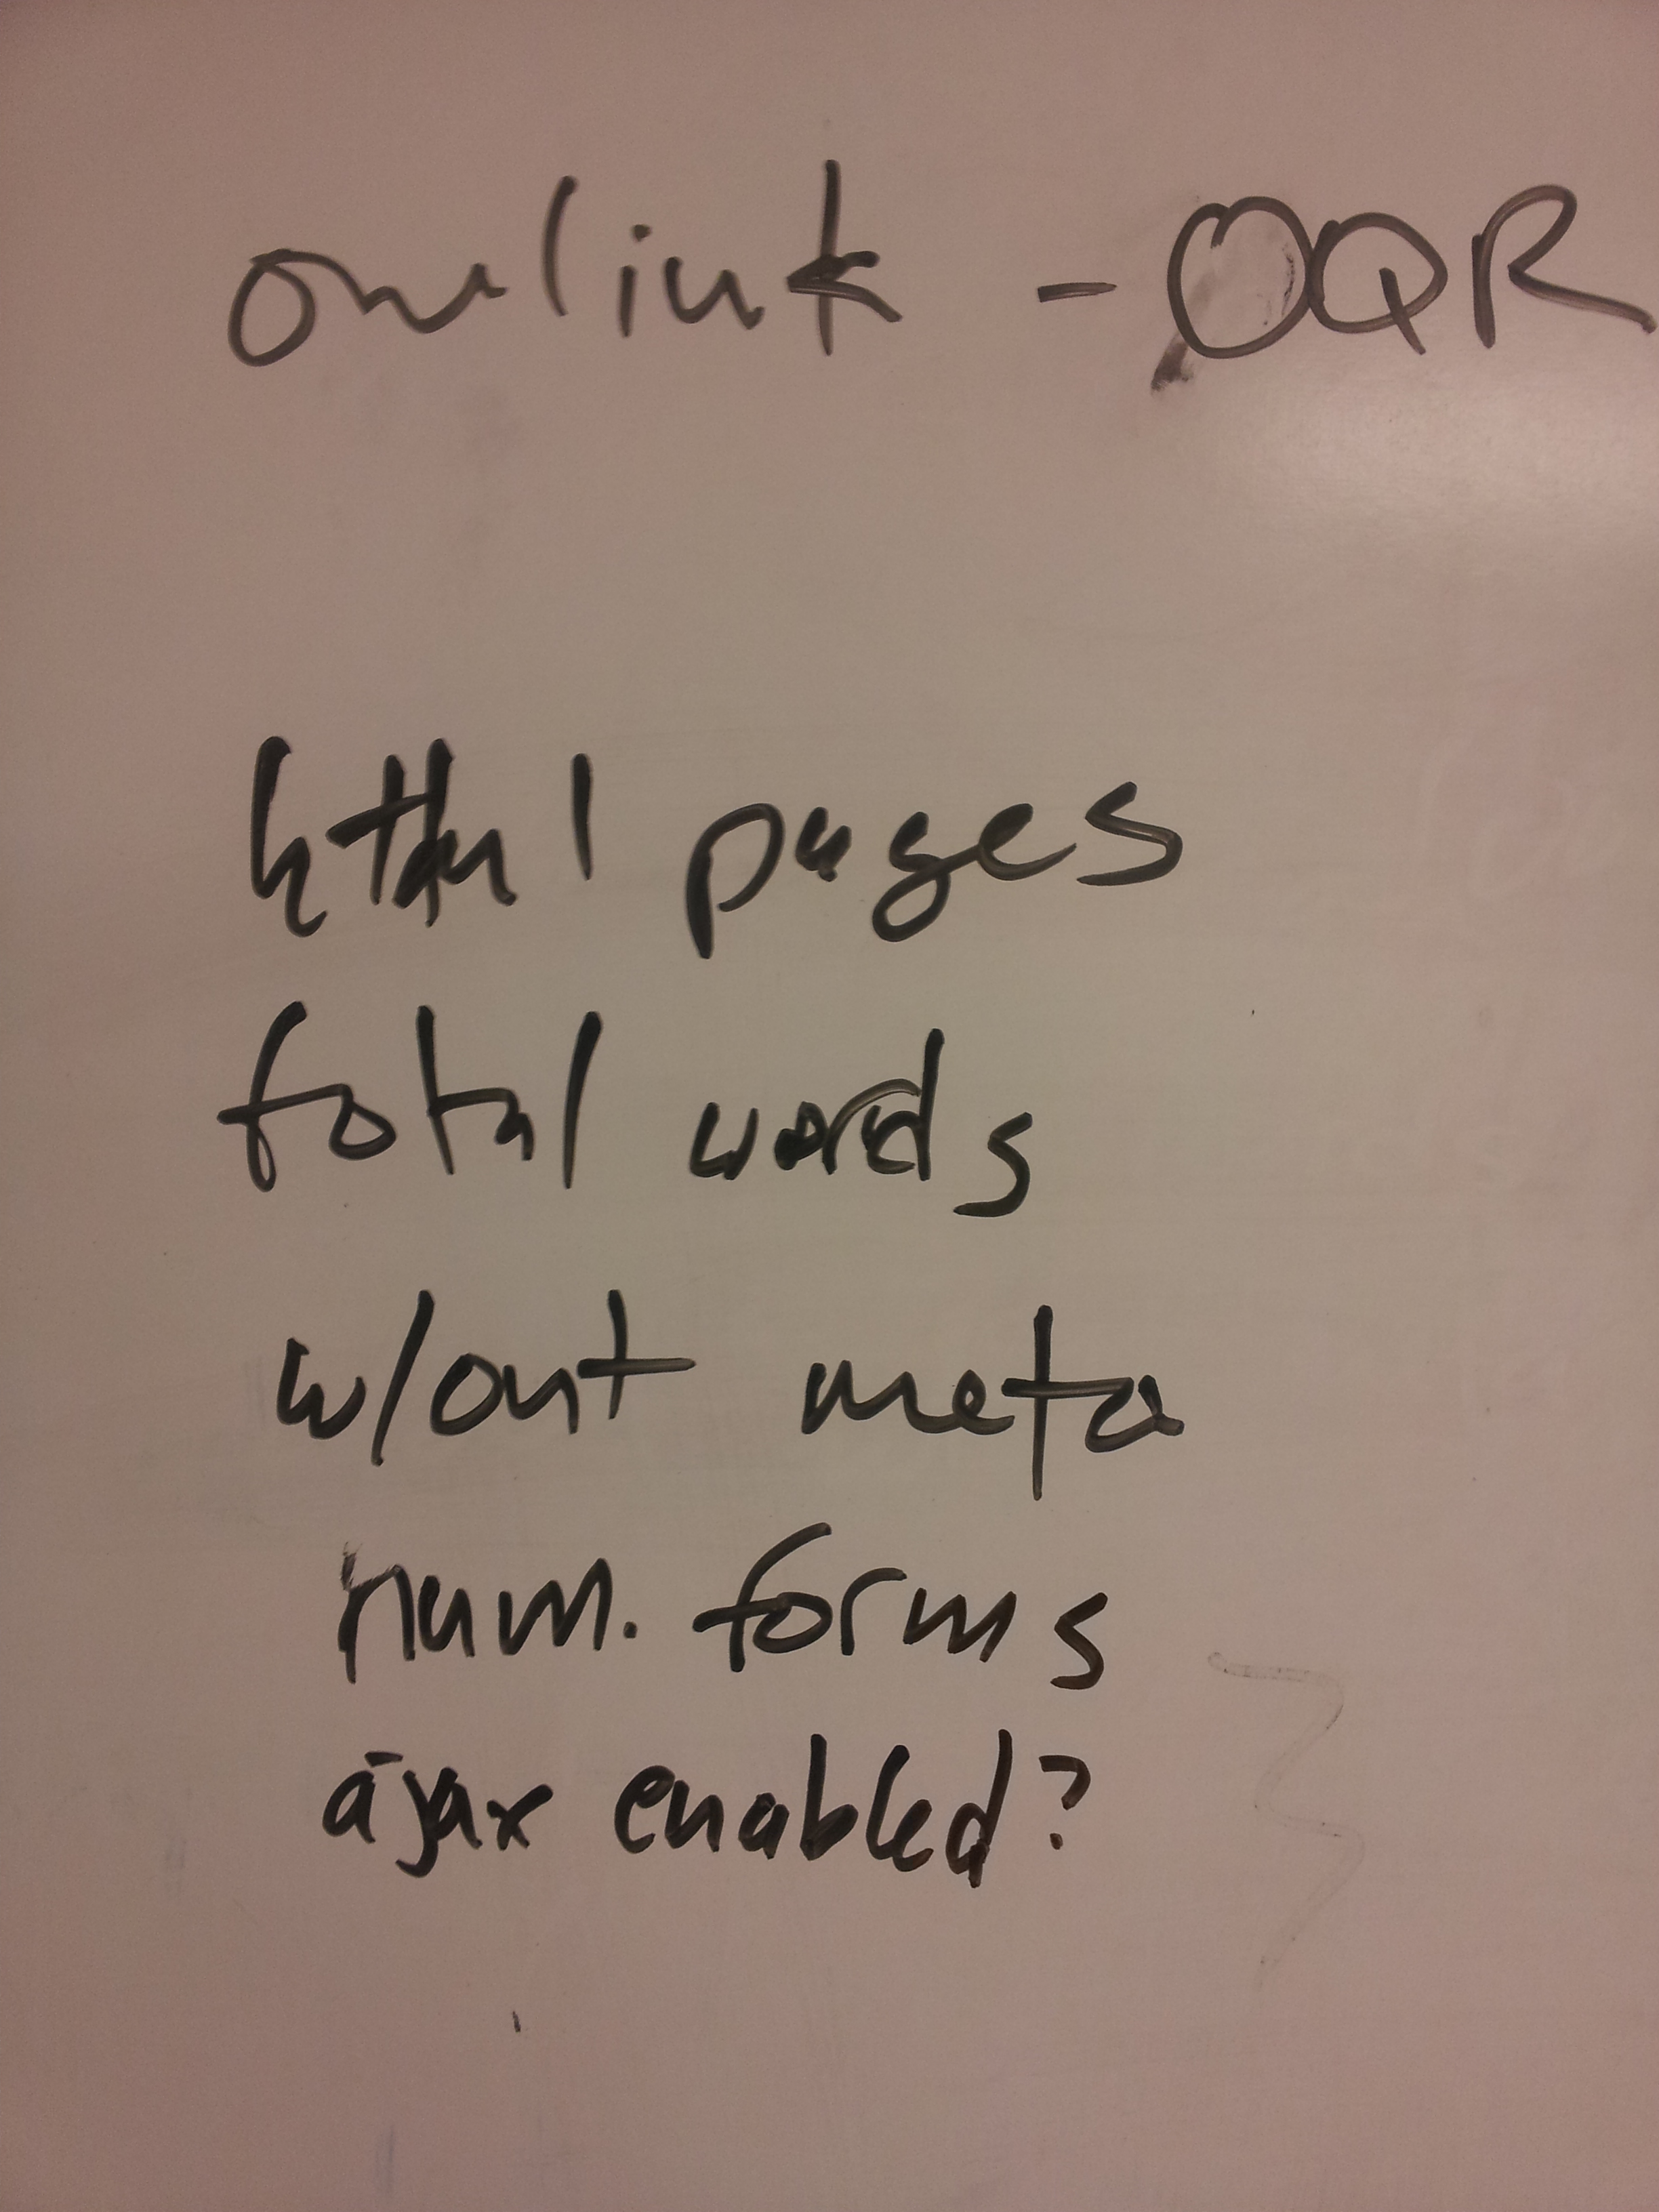 onelink - OQR
html pages
total words
w/out meta
num. forms
ajax enabled?